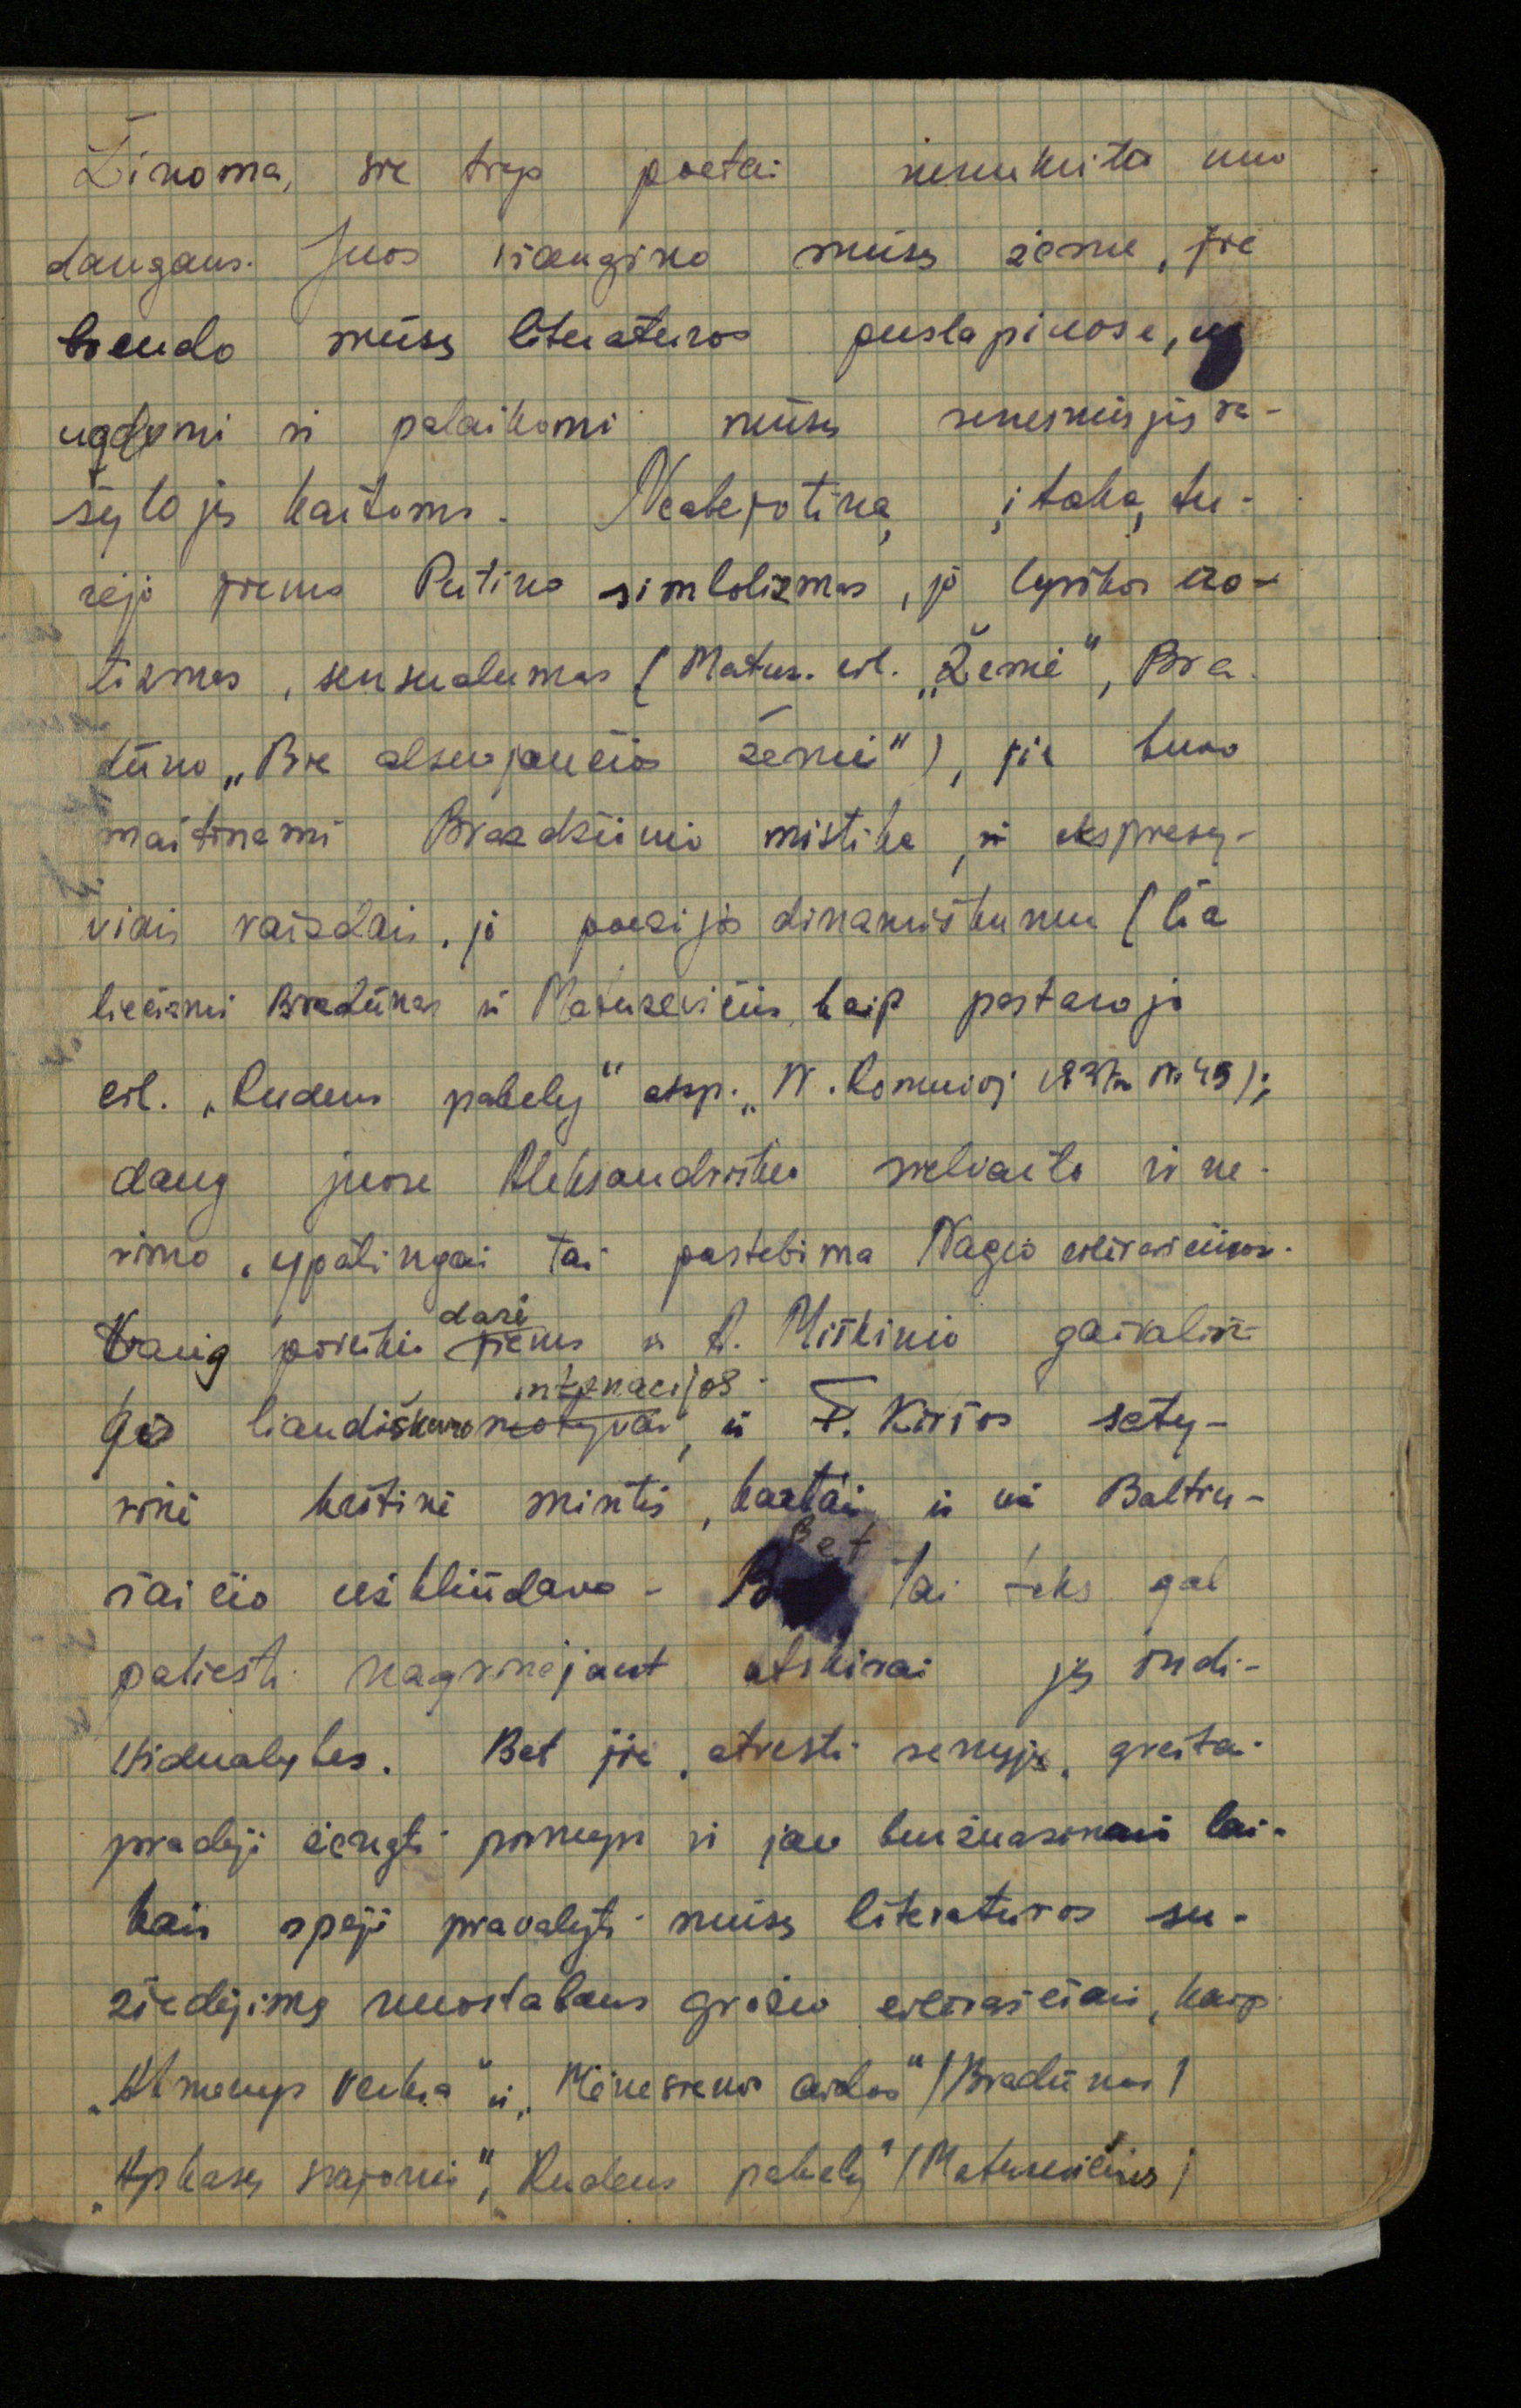 Žinoma, šie trys poetai nenukrito nuo
dangaus. Juos išaugino mūsų žemė, jie
brendo mūsų literatūros puslapiuose,
ugdomi ir palaikomi mūsų senesniųjų ra-
šytojų kaitoms. Neabejotiną įtaką tu-
rėjo jiems Putino simbolizmas, jo lyrikos ero-
tizmas, sensualumas (Matuz. eil. „Žemė“, Bra-
dūno „Prie alsuojančios žemės“), jie buvo
maitinami Brazdžionio mistika ir ekspresy-
viais vaizdais, jo poezijos dinamiškumu (čia
liečiami Bradūnas ir Matuzevičius, kaip pastarojo
eil. „Rudens pakely“ atsp. „N. Romuvoj 1937 m Nr 49);
daug juose Aleksandriškio sielvarto ir ne-
rimo, ypatingai tai pastebima Nagio eilėraščiuose.
Daug poveikio darė jiems ir A. Miškinio gaivalin-
gos liaudiškumo intonacijos motyvai, ir F. Kiršos saty-
rinė kritinė mintis, kartais ir iš Baltru-
šaičio užkliūdavo - Bet tai teks gal
paliesti nagrinėjant atskirai jų indi-
vidualybes. Bet jie, atvesti senųjų, greitai
pradėjo žengti pirmyn ir jau buržuaziniais lai-
kais spėjo pravalyti mūsų literatūros su-
žiedėjimą nuostabaus grožio eilėraščiais, kaip
„Akmenys verkia“ ir „Mėnesienos aidas“ /Bradūnas/
„Apkasų svajonės“, „Rudens pakely“ /Matuzevičius/